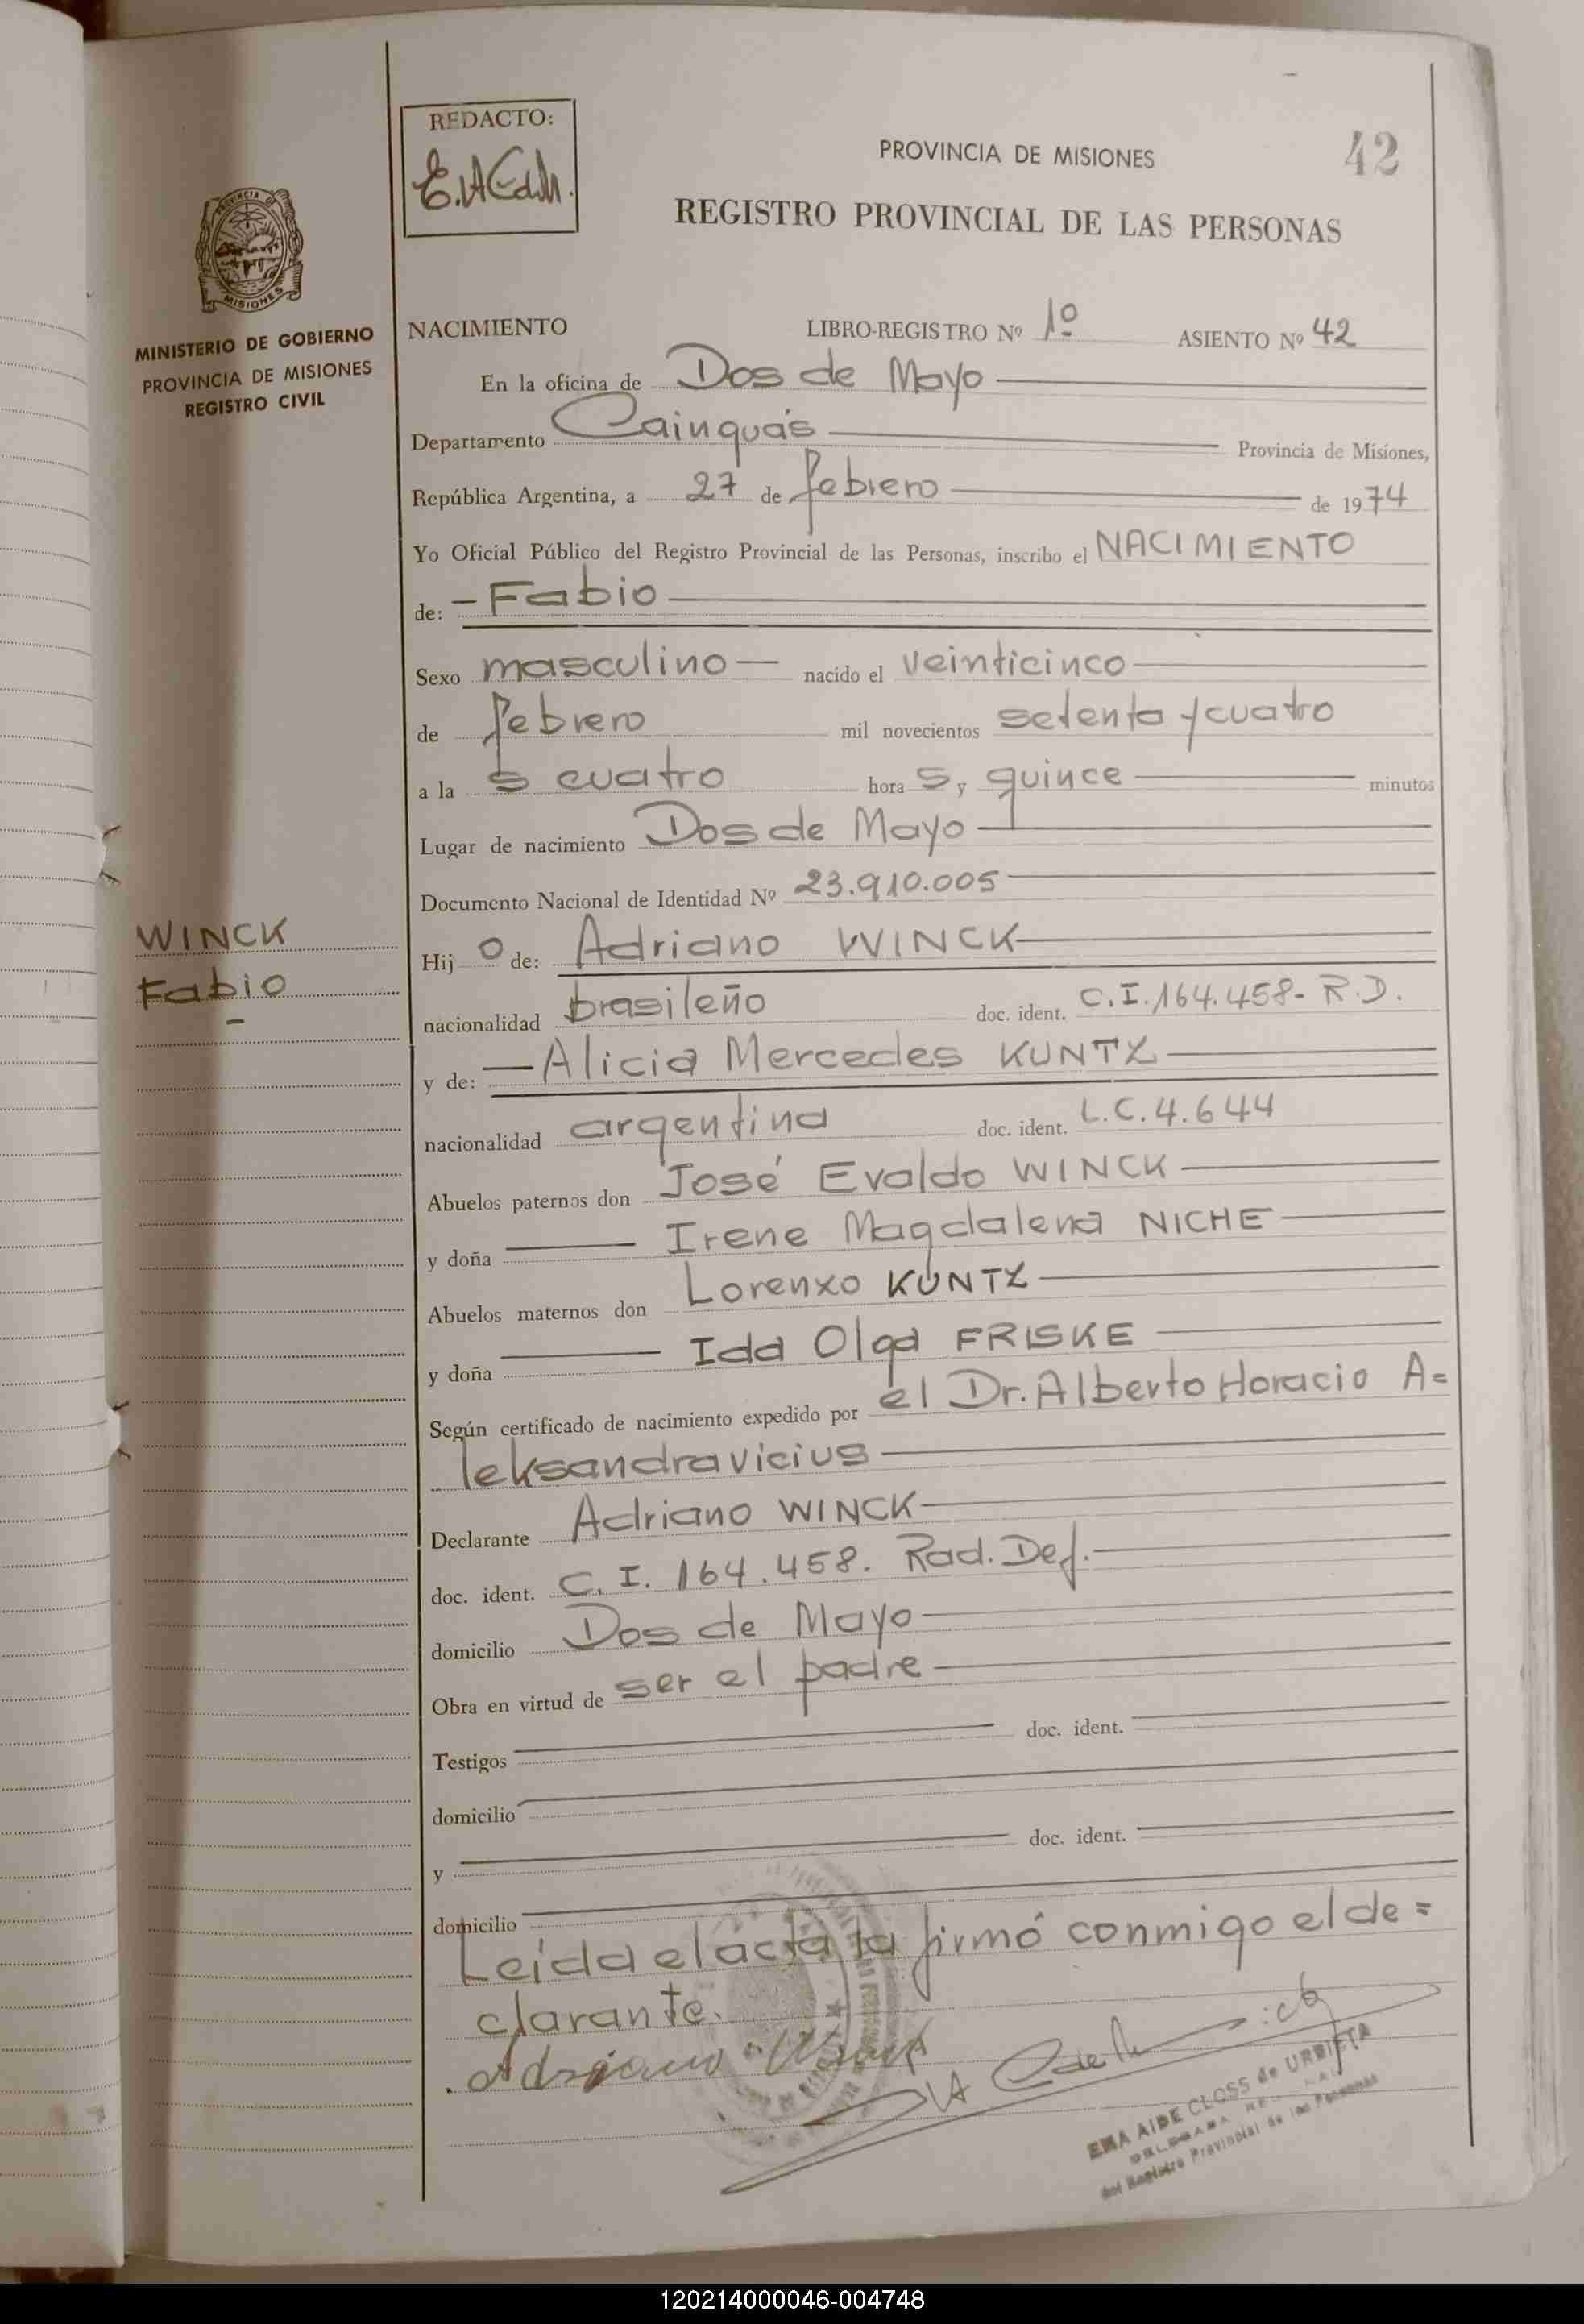 REDACTO:
E.A.C.d.M.
PROVINCIA DE MISIONES
42
REGISTRO PROVINCIAL DE LAS PERSONAS
PROVINCIA DE
MISIONES
MINISTERIO DE GOBIERNO
PROVINCIA DE MISIONES
REGISTRO CIVIL
NACIMIENTO LIBRO-REGISTRO Nº 1º ASIENTO Nº 42
En la oficina de Dos de Mayo
Departamento Cainguás Provincia de Misiones,
República Argentina, a 27 de febrero de 1974
Yo Oficial Público del Registro Provincial de las Personas, inscribo el NACIMIENTO
de: - Fabio
Sexo masculino nacido el veinticinco
de febrero mil novecientos setenta y cuatro
a la s cuatro hora s y quince minutos
Lugar de nacimiento Dos de Mayo
Documento Nacional de Identidad Nº 23.910.005
WINCK
Fabio
Hij o de: Adriano WINCK
nacionalidad brasileño doc. ident. C.I. 164.458- R.D.
y de: Alicia Mercedes KUNTZ
nacionalidad argentina doc. ident. L.C. 4.644
Abuelos paternos don José Evaldo WINCK
y doña Irene Magdalena NICHE
Abuelos maternos don Lorenzo KUNTZ
y doña Ida Olga FRISKE
Según certificado de nacimiento expedido por el Dr. Alberto Horacio A=
leksandravicius
Declarante Adriano WINCK
doc. ident. C. I. 164.458. Rad. Def.
domicilio Dos de Mayo
Obra en virtud de ser el padre
Testigos doc. ident.
domicilio
y doc. ident.
domicilio
Leída el acta la firmó conmigo el de=
clarante.
Adriano Winck
EMA AIDE CLOSS de URBIETA
del Registro Provincial de las Personas
120214000046-004748